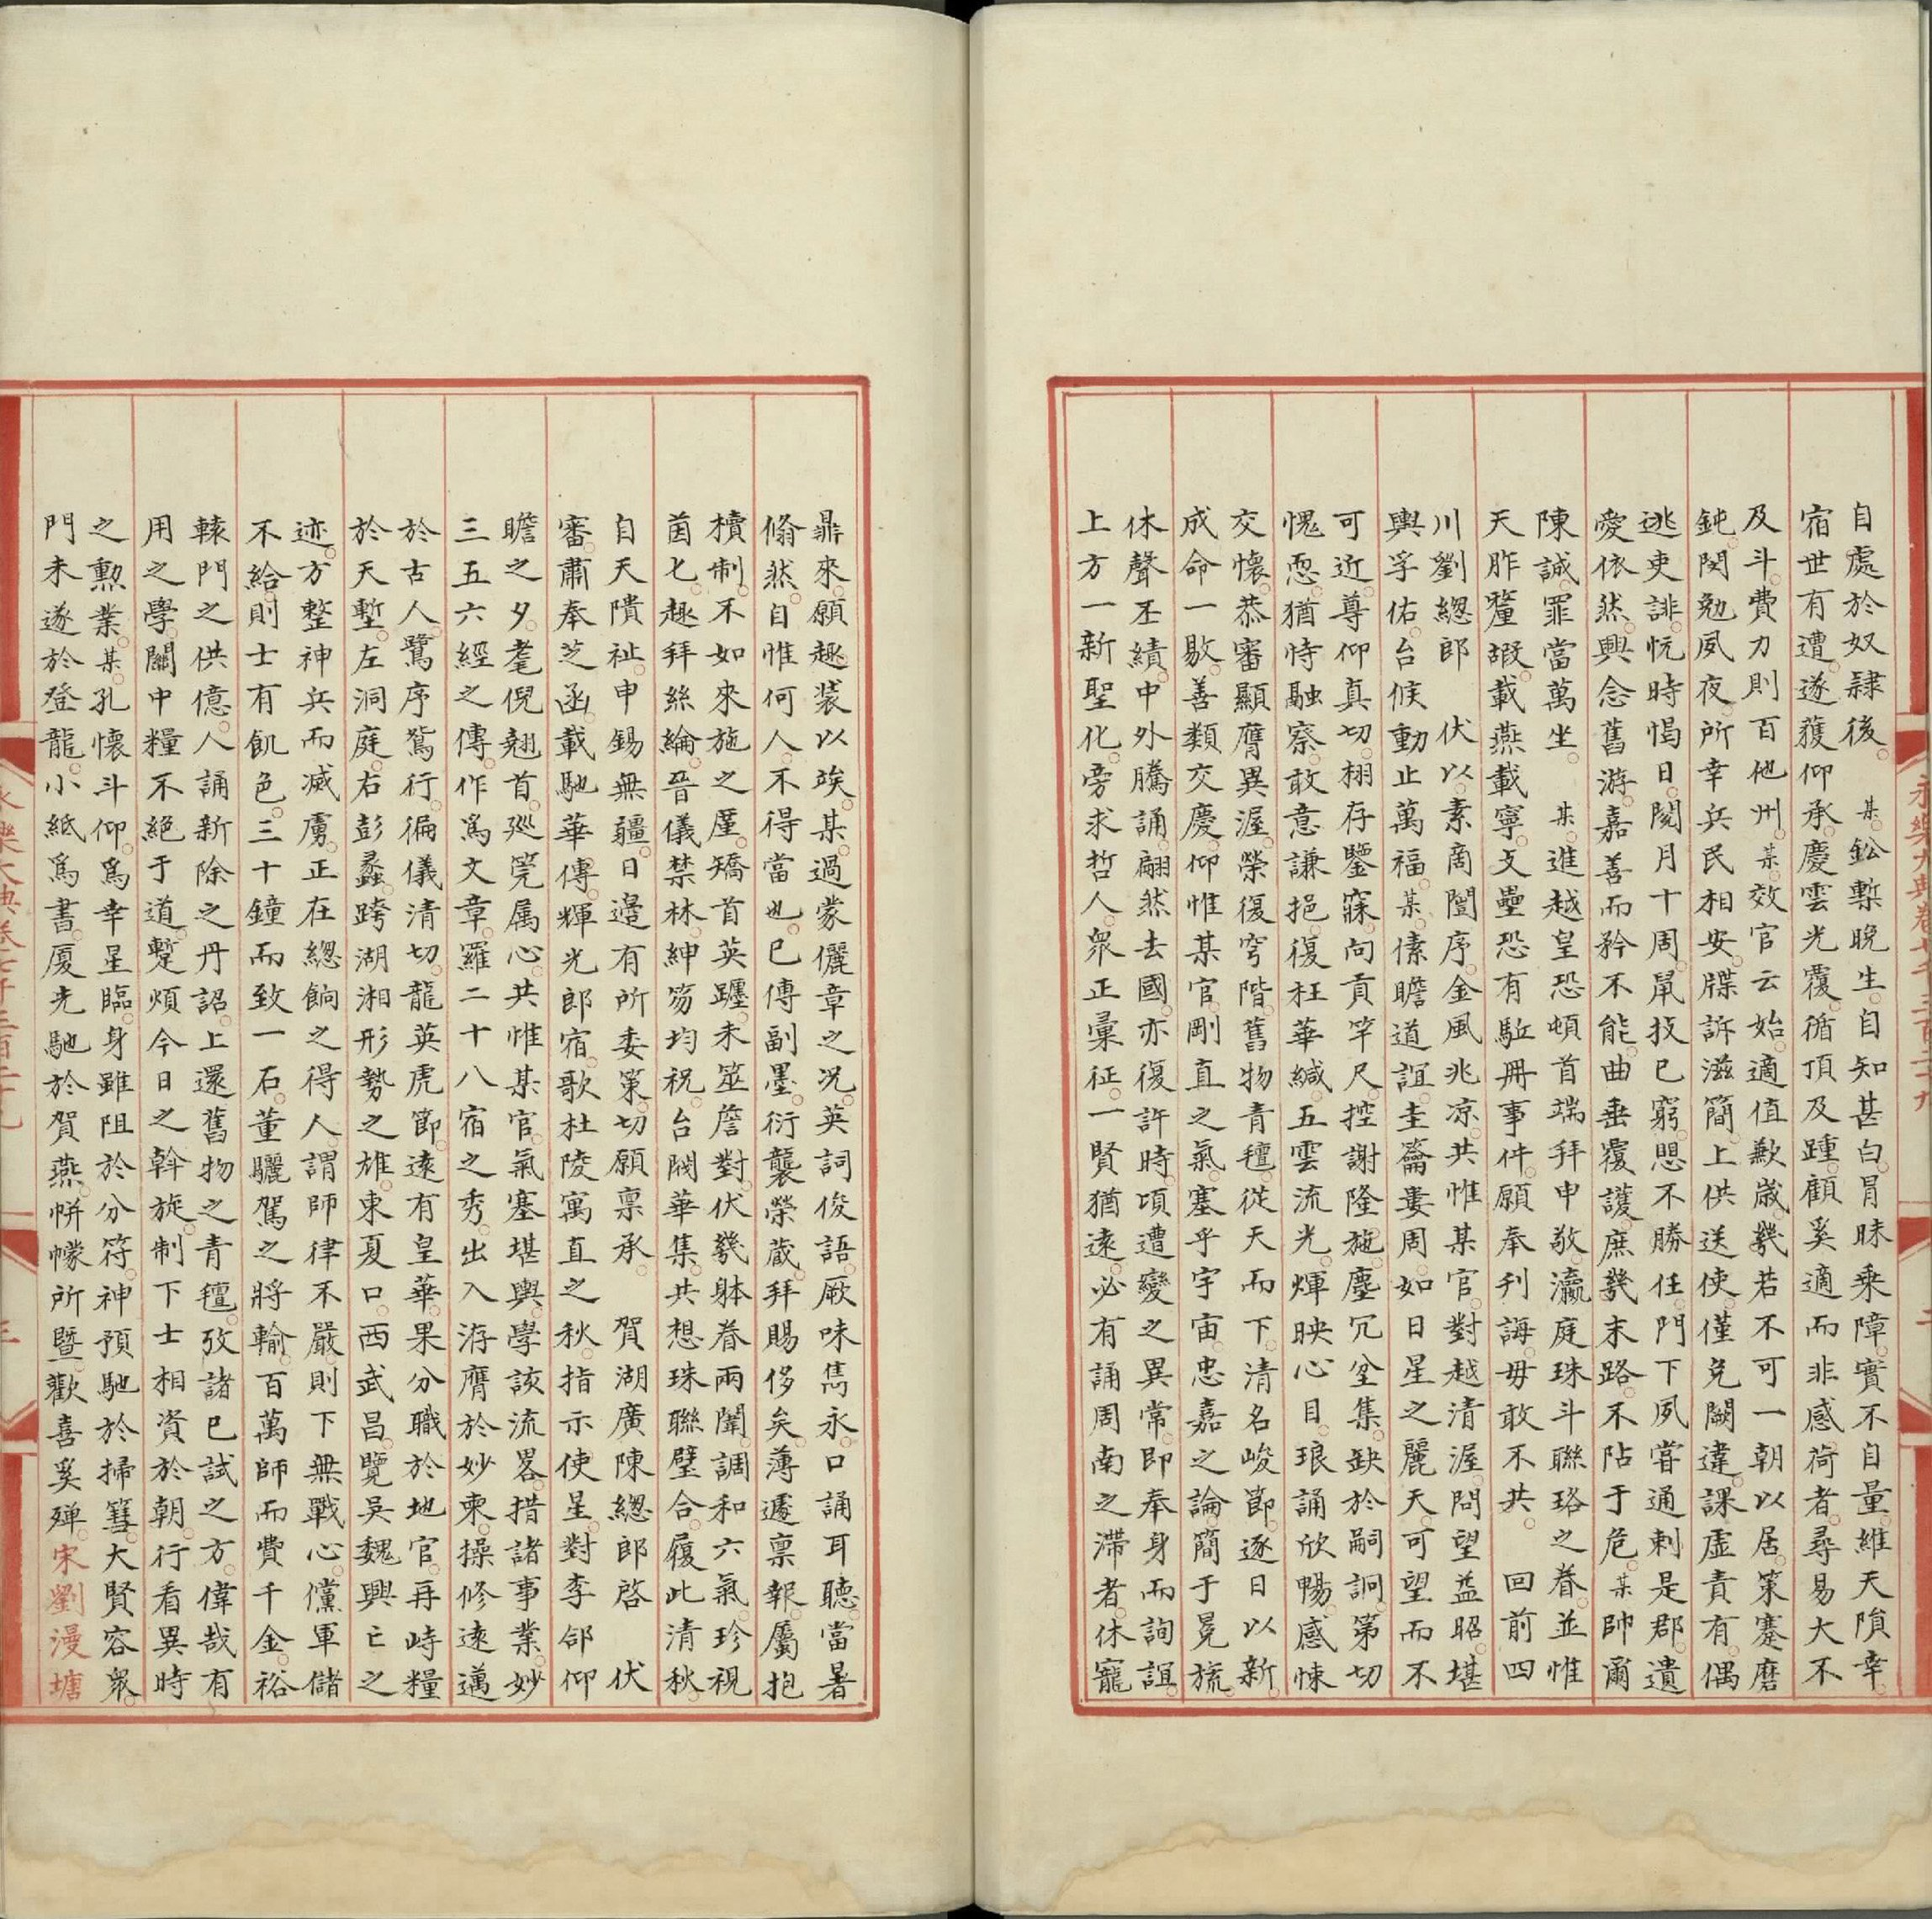 自處於奴隸後。某鈆槧晚生。自知甚白。冒昧乘障。實不自量。維天隕幸。
宿世有遭。遂獲仰承。慶雲光覆。循頂及踵。顧奚適而非感荷者。尋易大不
及斗。費力則百他州。某效官云始。適值歉歲。幾若不可一朝以居。策蹇磨
鈍。閔勉夙夜。所幸兵民相安。牒訴滋簡。上供送使。僅免闕違。課虛責有。偶
逃吏誹。怳時愒日。閱月十周。鼠技已窮。愳不勝任。門下夙嘗通剌是郡。遺
愛依然。興念舊游。嘉善而矜不能。曲垂覆護。庶幾末路。不阽于危。某帥爾
陳誠。罪當萬坐。某進越皇恐。頓首端拜申敬。瀛庭珠斗聯珞之眷。並惟
天胙釐嘏。載燕載寧。文壘恐有駈冊事件。願奉刋誨。毋敢不共。回前四
川劉緫郎　伏以。素商闓序。金風兆凉。共惟某官。對越清渥。問望益昭。堪
輿孚佑。台候動止萬福。某傃瞻道誼。圭籥婁周。如日星之麗天。可望而不
可近。尊仰真切。栩存鑒寐。向貢竿尺。控謝隆施。塵冗坌集。缺於嗣詗。第切
愧恧。猶恃融察。敢意謙挹。復枉華緘。五雲流光。煇映心目。琅誦欣暢。感悚
交懷。恭審顯膺異渥。榮復穹階。舊物青氊。從天而下。清名峻節。逐日以新。
成命一敭。善類交慶。仰惟某官。剛直之氣。塞乎宇宙。忠嘉之論。簡于冕旒。
休聲丕績。中外騰誦。翩然去國。亦復許時。頃遭變之異常。即奉身而詢誼。
上方一新聖化。旁求哲人。衆正彙征。一賢猶遠。必有誦周南之滯者。休寵
鼎來。願趣裝以竢。某過蒙儷章之况。英詞俊語。厥味雋永。口誦耳聽。當暑
翛然。自惟何人。不得當也。已傳副墨。衍襲榮蔵。拜賜侈矣。薄遽禀報。屬抱
櫝制。不如來施之厪。矯首英躔。未筮詹對。伏幾躰眷兩闈。調和六氣。珍視
茵匕。趣拜絲綸。晉儀禁林。紳笏均祝。台閥華集。共想珠聯璧合。履此清秋。
自天隤祉。申錫無疆。日邉有所委策。切願禀承。賀湖廣陳緫郎啓　伏
審。肅奉芝函。載馳華傳。輝光郎宿。歌杜陵寓直之秋。指示使星。對李郃仰
瞻之夕。耄倪翹首。廵筦属心。共惟某官。氣塞堪輿。學該流畧。措諸事業。妙
三五六經之傳。作爲文章。羅二十八宿之秀。出入洊膺於妙柬。操修逺邁
於古人。鷺序鵷行。徧儀清切。龍英虎節。逺有皇華。果分職於地官。再峙糧
於天塹。左洞庭。右彭蠡。跨湖湘形勢之雄。東夏口。西武昌。覽吴魏興亡之
迹。方整神兵而滅虜。正在緫餉之得人。謂師律不嚴。則下無戰心。儻軍儲
不給。則士有飢色。三十鐘而致一石。董驪駕之將輸。百萬師而費千金。裕
轅門之供億。人誦新除之丹詔。上還舊物之青氊。攷諸已試之方。偉哉有
用之學。關中糧不絕于道。蹔煩今日之斡旋。制下士相資於朝。行看異時
之勲業。某孔懷斗仰。爲幸星臨。身雖阻於分符。神預馳於掃篲。大賢容衆。
門未遂於登龍。小紙爲書。厦尤馳於賀燕。帡幪所曁。歡喜奚殫。宋劉漫塘